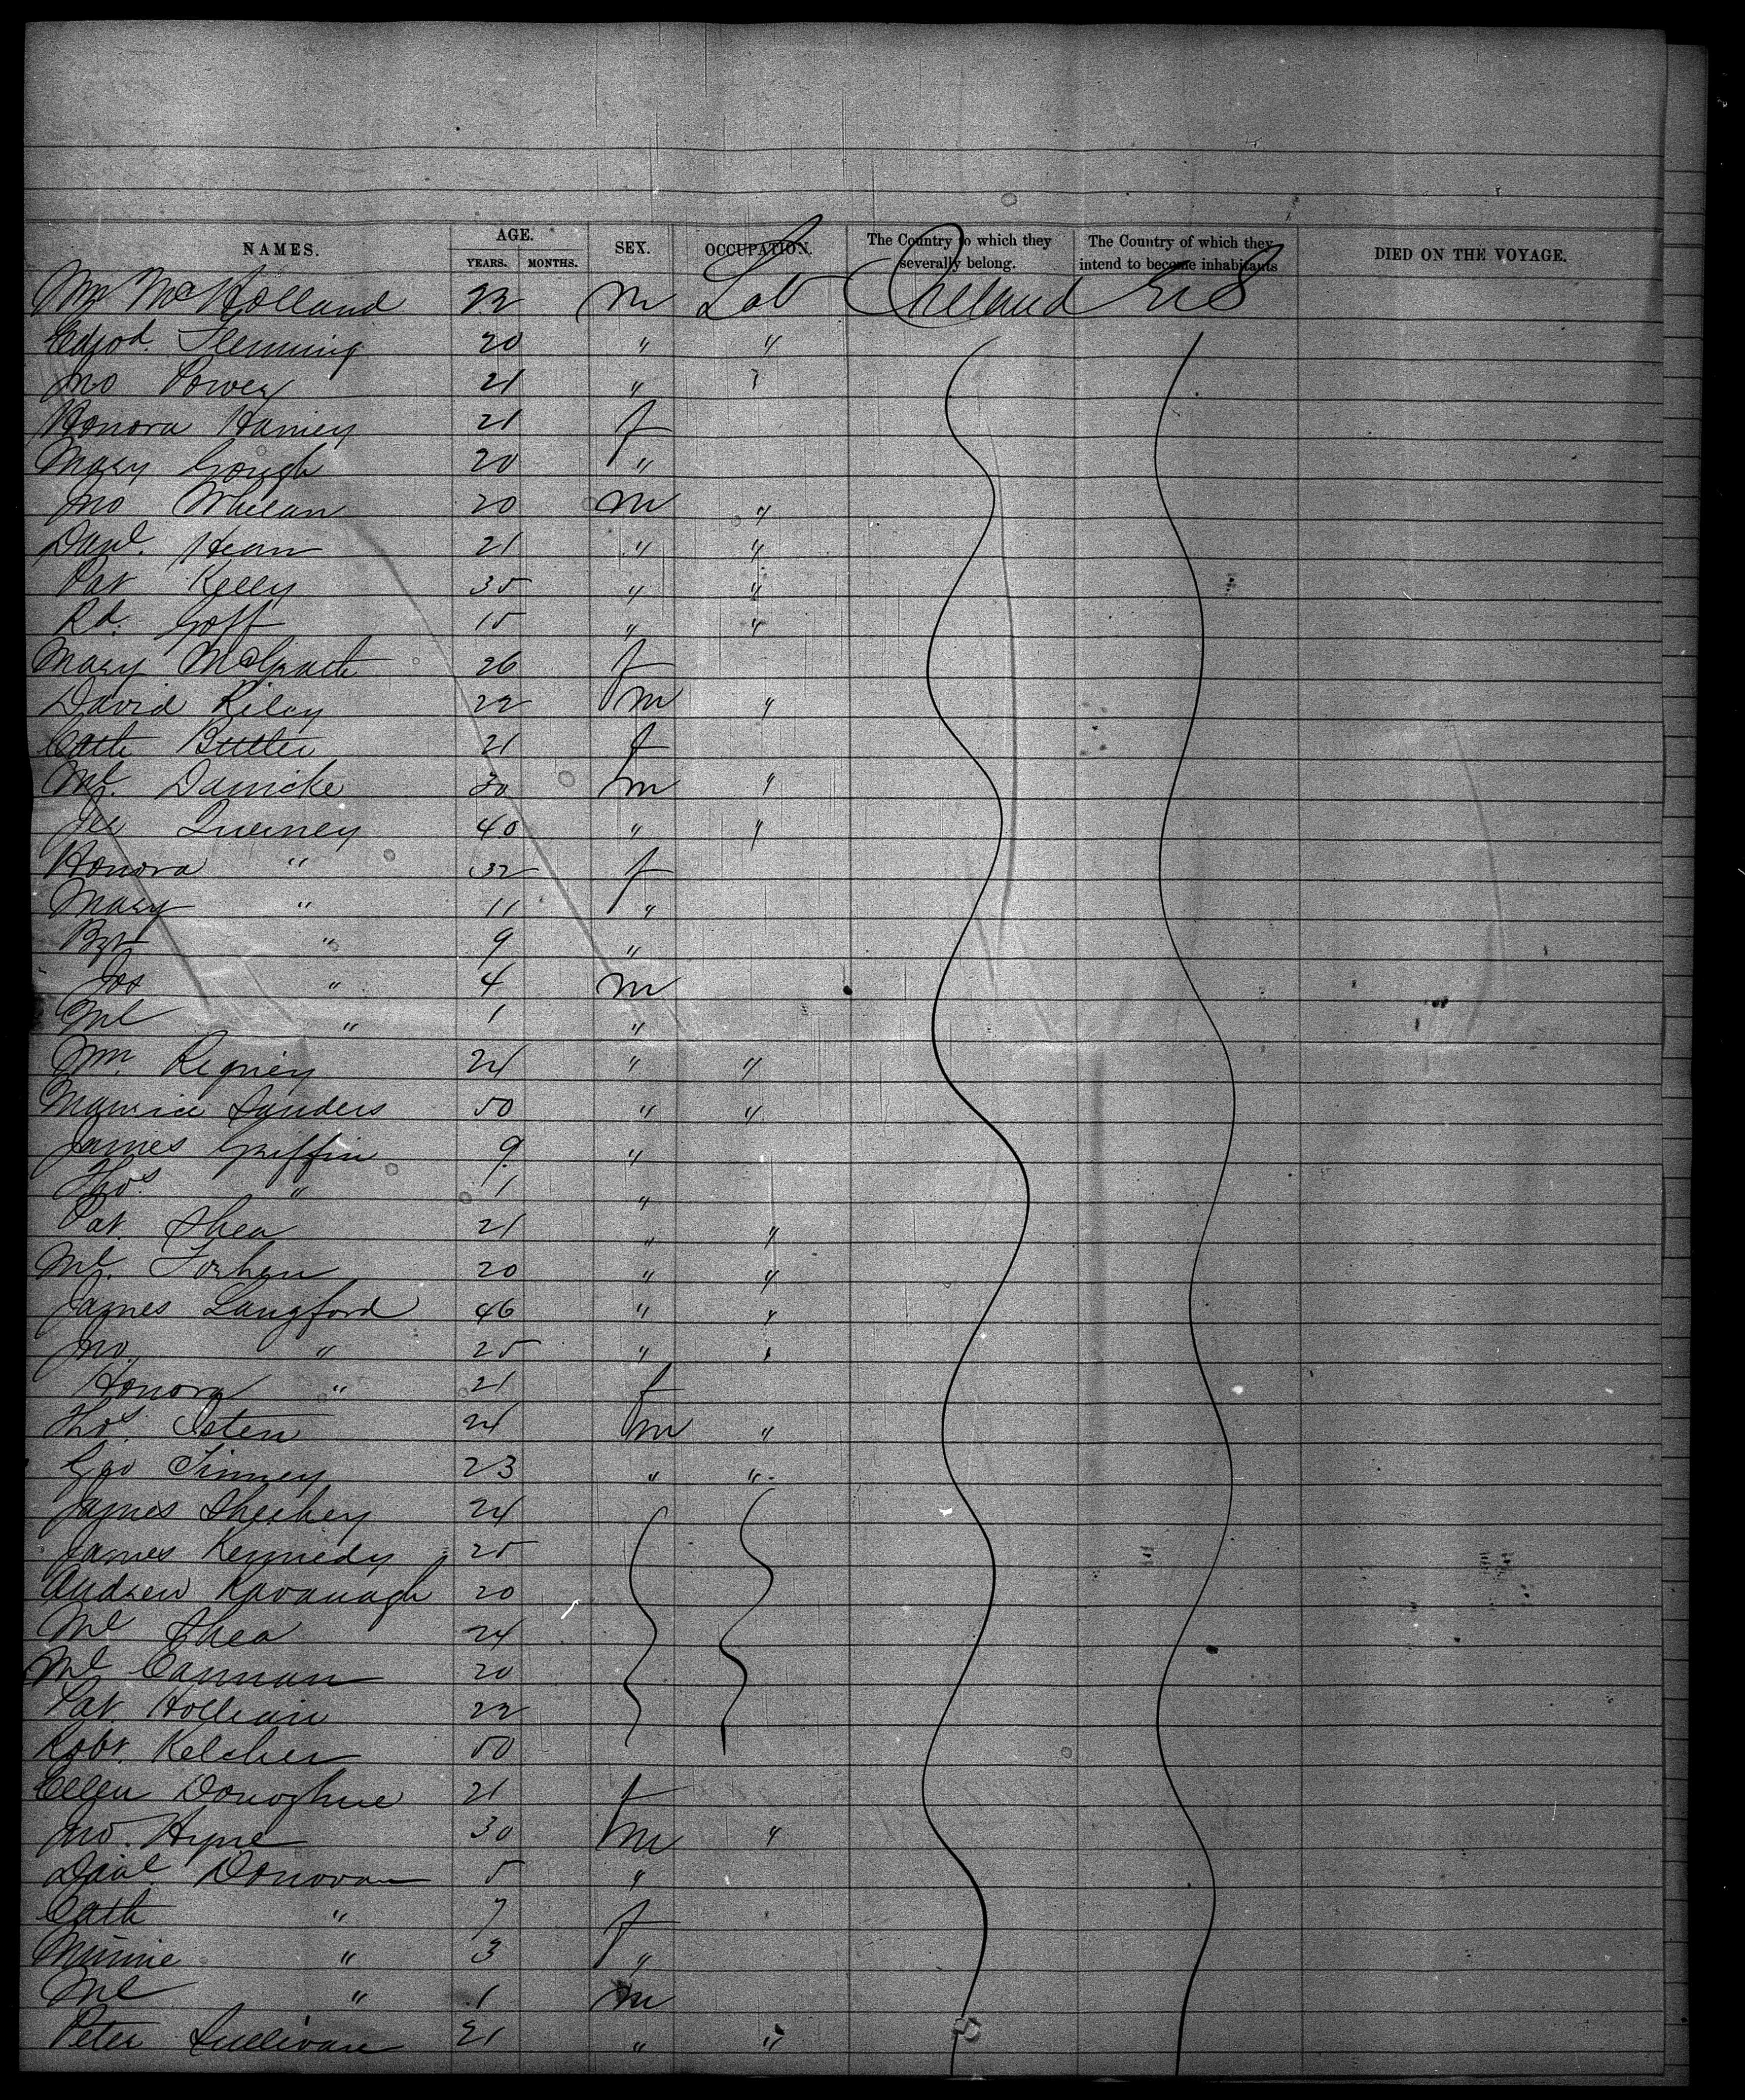 NAMES. AGE. YEARS. MONTHS. SEX. OCCUPATION. The Country to which they severally belong. The Country of which they intend to become inhabitants DIED ON THE VOYAGE.
Wm McHolland 22 m Lab Ireland US
Edwd. Flemming 20 " "
Jno Power 21 "
Honora Haney 21 f
Mary Gough 20 "
Jno Whelan 20 m "
Danl. Hean 21 " "
Pat Kelly 35 " "
Rd. Goff 15 " "
Mary McGrath 26 f
David Riley 22 m "
Cath Butler 21 f
Ml. Damicke 30 m "
40 " "
Honora " 32 f
Mary " 11 "
Bgt " 9 "
Jos " 4 m
Ml " 1 "
Wm. Regney 24 " "
Maurice Sanders 50 " "
James Griffin 9 "
Thos. " 1 "
Pat. Shea 21 " "
Ml. 20 " "
James Langford 46 " "
Jno. " 25 " "
Honora " 21 f
Thos. 24 m "
Geo Finney 23 " "
James Sheehey 24
James Kennedy 25
Andrew Kavanagh 20
Ml Shea 24
Ml Cannan 20
Pat. 22
Robt. Kelcher 50
Ellen Donoghue 21 f
Jno. Hyne 30 m "
Danl. Donovan 5 "
Cath " 7 f
Minnie " 3 "
Ml " 1 m
Peter Sullivan 21 " "